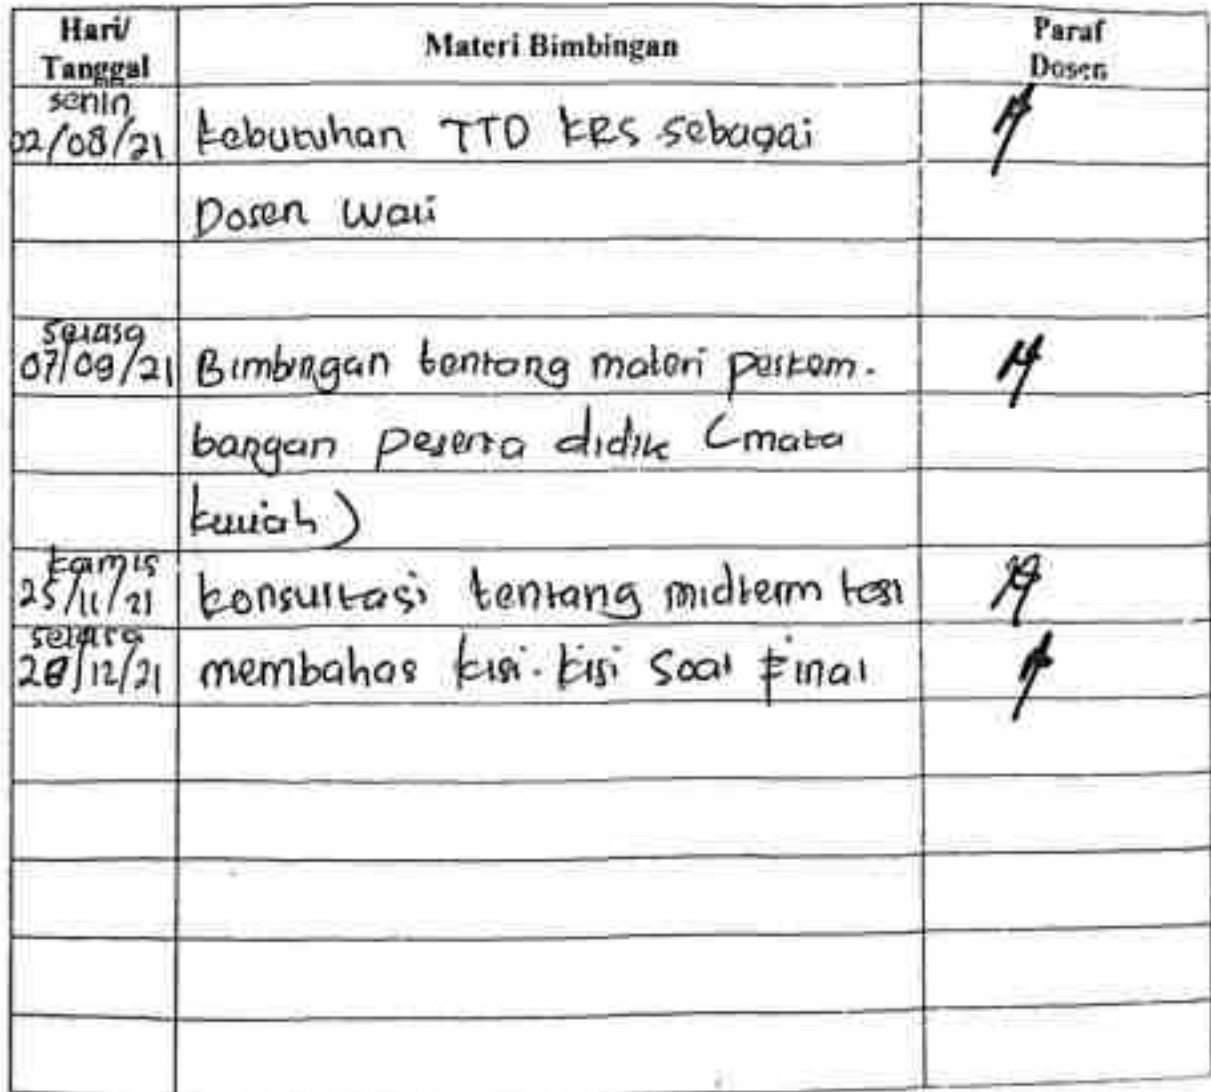 Hari/ Materi Bimbingan Paraf
Tanggal Dosen
senin
02/08/21 kebutuhan TTD KRS sebagai
Dosen Wali
selasa
07/09/21 Bimbingan tentang materi perkem-
bangan peserta didik (mata
kuliah)
kamis
25/11/21 konsultasi tentang midterm test
selasa
28/12/21 membahas kisi-kisi soal Final